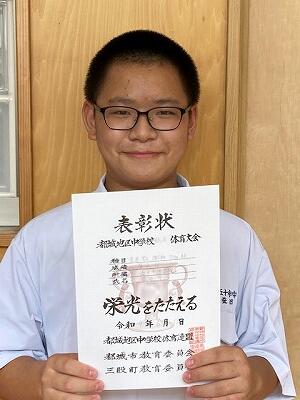 表彰状
都城地区中学校 体育大会
種目
成績
所属
氏名
栄光をたたえる
令和 年 月 日
都城地区中学校体育連盟
都城市教育委員会
三股町教育委員